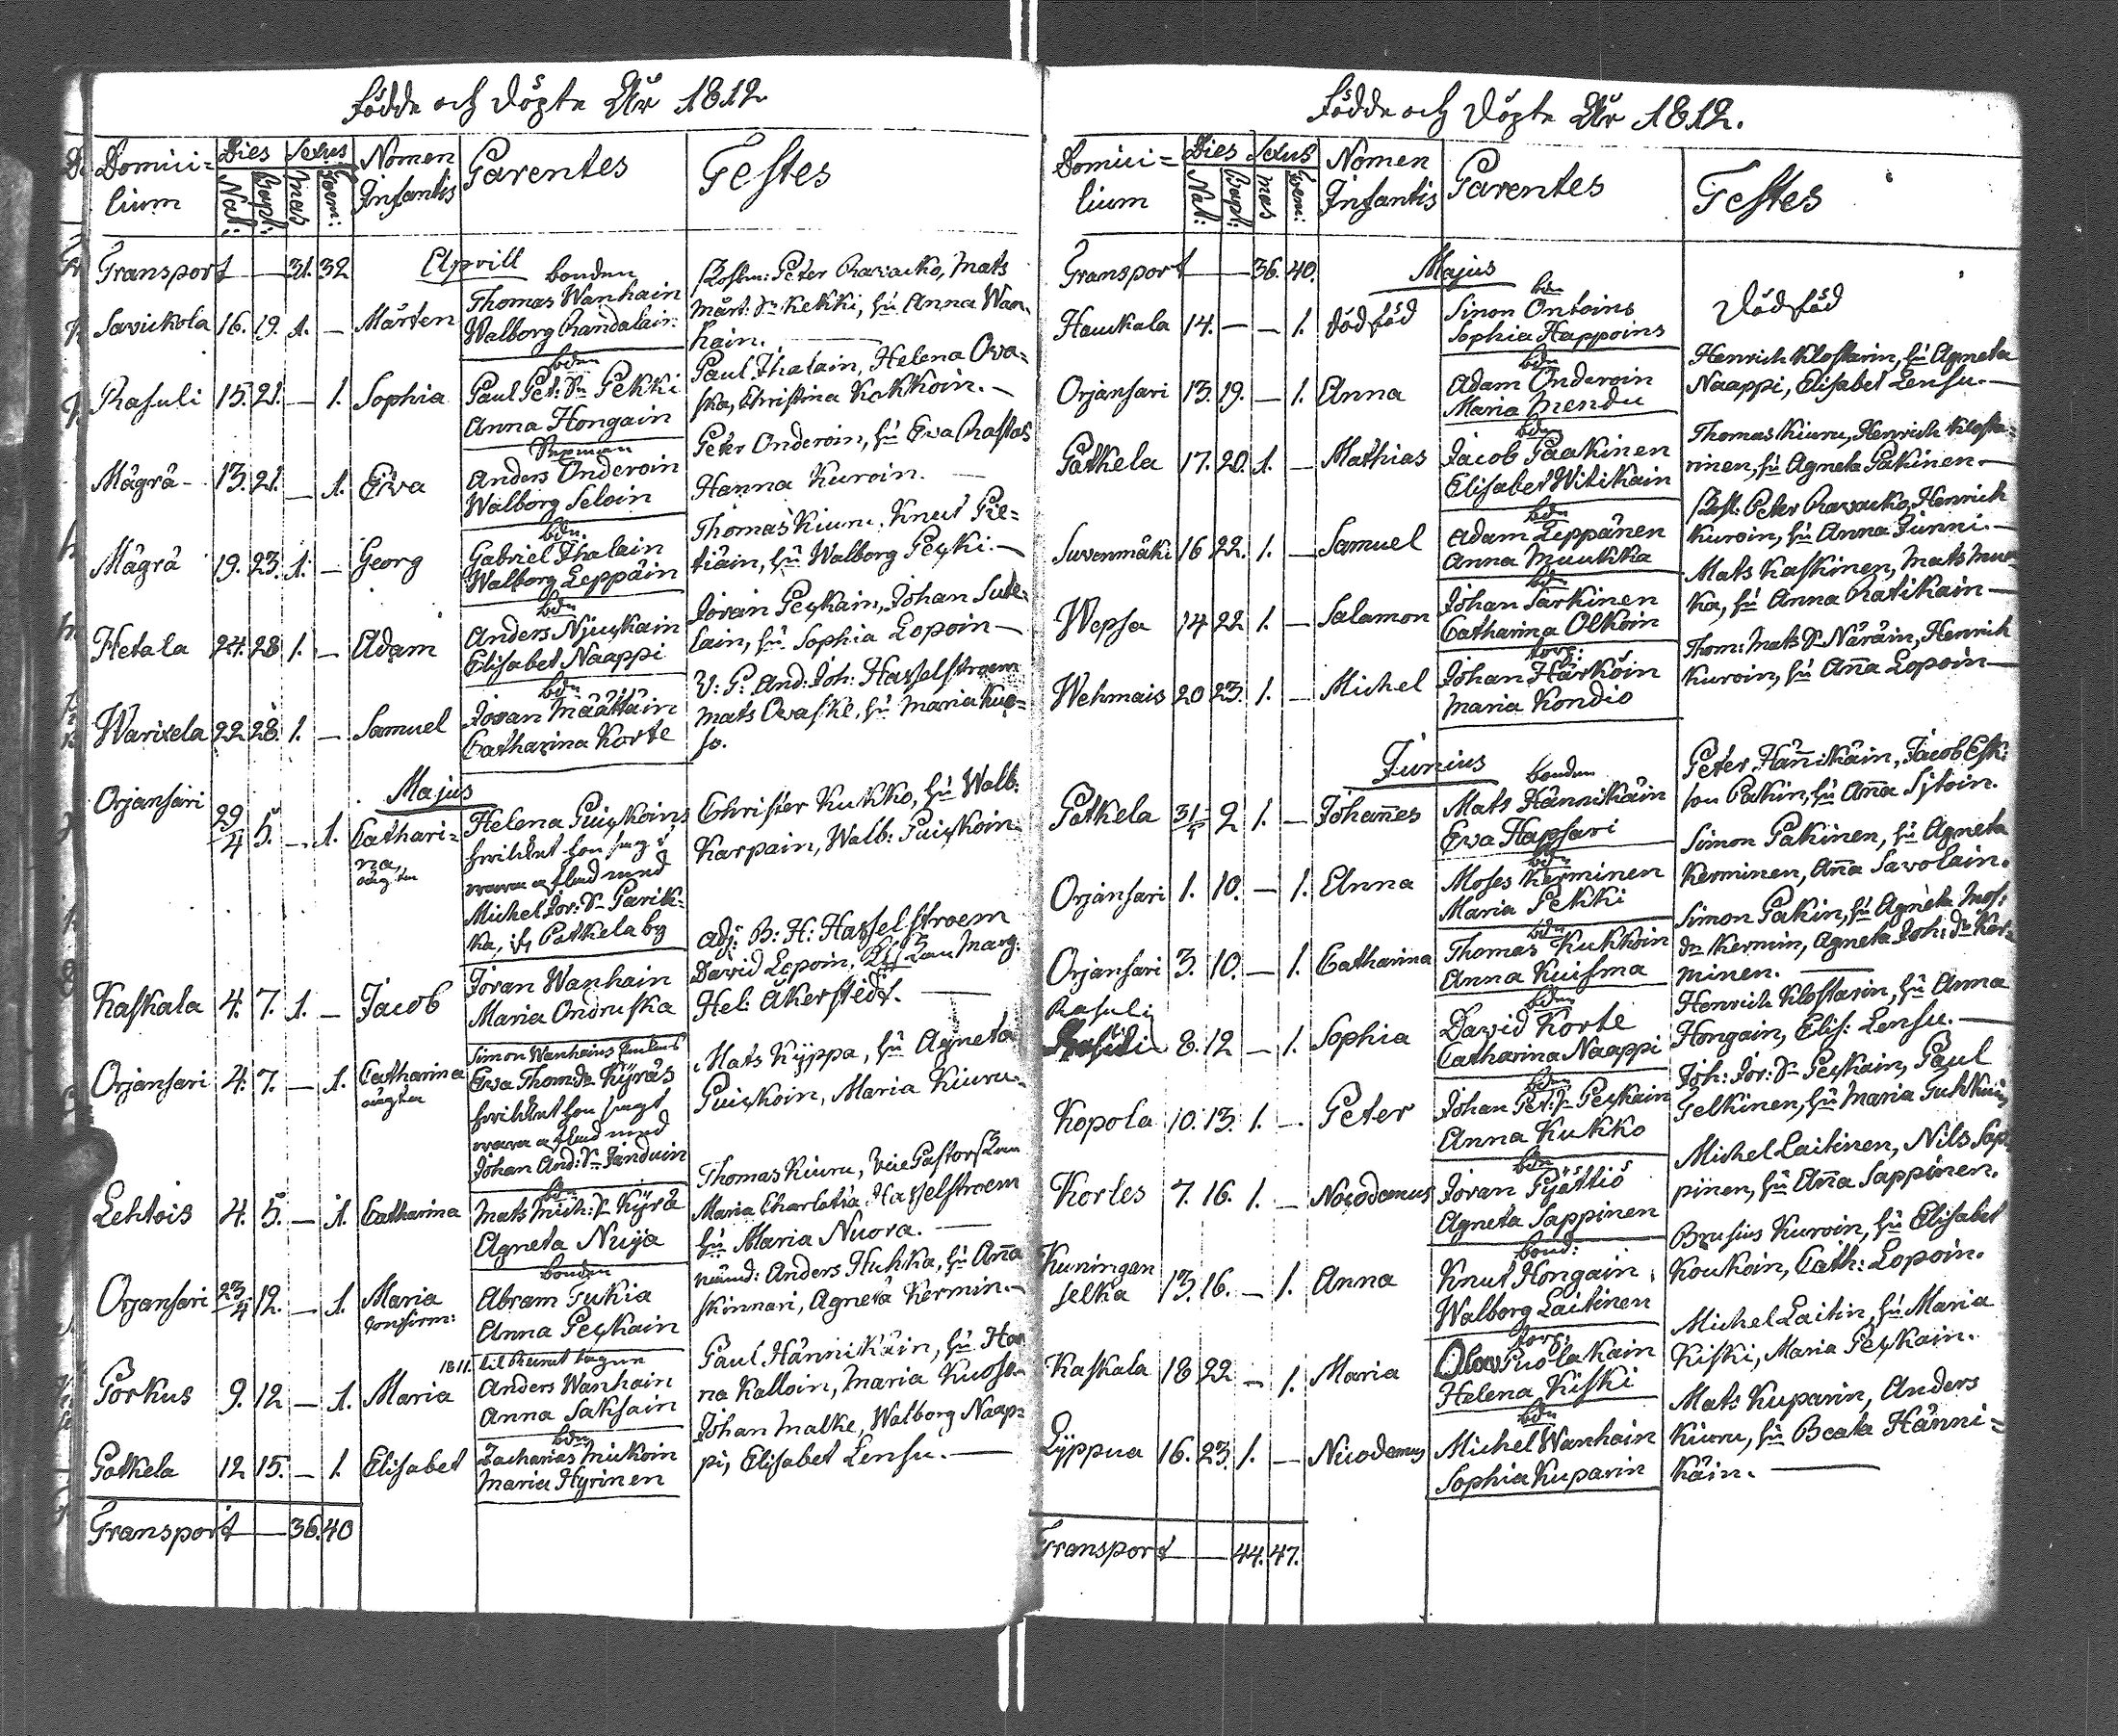 Födde och Döpte År 1812
Domici= Dies Sexus Nomen Parentes Testes
lium Nat: Bapt: Mas Foem: Infantis
Transport — — 31. 32
Aprill
Savickola 16. 19. 1. — Mårten
bonden
Thomas Wanhain
Walborg Randalain
Peter Ravacko, Mats
Mårt: Sn Kekki, hu Anna Wan=
hain.
Rasuli 15. 21. — 1. Sophia
bdn
Paul Pet: Sn Pekki
Anna Hongain
Paul Ihalain, Helena Ova=
ska, Christina Kokkoin. —
Mägrä 13. 21. — 1. Eva
Anders Onderoin
Walborg Seloin
Peter Onderoin, hu Eva Rastas
Hanna Kuroin. —
Mägrä 19. 23. 1. — Georg
bdn.
Gabriel Ihalain
Walborg Leppäin
Thomas Kiuru, Knut Pie=
tiäin, hu Walborg Peski. —
Hetala 24. 28 1. — Adam
bdn
Anders Njuskain
Elisabet Naappi
Jöran Peskain, Johan Sute=
lain, hu Sophia Lopoin —
Warixela 22 28. 1. — Samuel
bdn
Jöran Määttäin
Catharina Korte
V: P: And: Joh: Hasselstroem
Mats Ovaske, hu Maria Kuo=
so.
Majus
Orjansari 29/4 5. — 1. Cathari=
na
oägta
Helena Puiskoins
hvilket hon sagt
vara aflad med
Michel Jör: Sn Parik=
ka, if Patkela by
Christer Kukko, hu Walb:
Karpain, Walb: Puiskoin.
Kaskala 4. 7. 1. — Jacob
Jöran Wanhain
Maria Ondruska
Adj: B: H: Hasselstroem
David Lopoin, Marg:
Hel: Akerstedt. —
Orjansari 4. 7. — 1. Catharina
oägta
Simon Wanhains
Eva Thom: Dr Kyräs
hvilket hon sagt
vara aflad med
Johan And: Sn Janduin
Mats Kyppa, hu Agneta
Puiskoin, Maria Kiuru.
Lehtois 4. 5. — 1. Catharina
bdn
Mats Mich: Sn Kyrä
Agneta Nuija
Thomas Kiuru, Vice Pastorskan
Maria Charlotta Hasselstroem
hu Maria Nuora. —
Orjansari 23/4 12. — 1. Maria
confirm:
bonden
Abram Tukia
Anna Peskain
nämd: Anders Hukka, hu Aña
Skinnari, Agneta Kermin. —
Porkus 9. 12 — 1. Maria
1811.
Anders Wanhain
Anna Saksain
Paul Hännikäin, hu Han
na Kalloin, Maria Kuosa
Patkela 12 15. — 1. Elisabet
bdn
Zacharias Mickoin
Maria Hyrinen
Johan Malke, Walborg Naap=
pi, Elisabet Lensu. —
Transport — — 36. 40
Födde och Döpte År 1812.
Domici= Dies Sexus Nomen Parentes Testes
lium Nat: Bapt: Mas Foem: Infantis
Transport — — 36. 40.
Majus
Hauckala 14. — — 1. dödföd
bdn
Simon Ontoins
Sophia Happoins
Dödföd
Orjansari 13. 19. — 1. Anna
bdn
Adam Onderoin
Maria Mendu
Henrich Klostarin, hu Agneta
Naappi, Elisabet Lensu. —
Patkela 17. 20. 1. — Mathias
bdn
Jacob Paakinen
Elisabet Witikain
Thomas Kiuru, Henrich Klosta=
rinen, hu Agneta Pakinen —
Suvenmäki 16 22. 1. — Samuel
bdn
Adam Leppänen
Anna Muukka
Peter Ravacko, Henrich
Kuroin, hu Anna Junni. —
Wepsa 14 22 1. — Salamon
bdn
Johan Särkinen
Catharina Olkoin
Mats Kaskinen, Mats Muu
ka, hu Anna Ratikain —
Wehmais 20 23. 1. — Michel
torp:
Johan Härköin
Maria Kondio
Thom: Mats Sn Näräin, Henrich
Kuroin, hu Aña Lopoin —
Junius
Patkela 31/5 2 1. — Johañes
bonden
Mats Hännikäin
Eva Hapsari
Peter Häñikäin, Jacob Esk:
son Pakin, hu Aña Sjtoin.
Orjansari 1. 10. — 1. Anna
bdn
Moses Kerminen
Maria Pekki
Simon Pakinen, hu Agneta
Kerminen, Aña Savolain.
Orjansari 3. 10. — 1. Catharina
bdn
Thomas Kukkoin
Anna Kuisma
Simon Pakin, hu Agneta Mos:
Dr Kermin, Agneta Joh: Dr Ker=
minen. —
Rasuli
8. 12 — 1. Sophia
bdn
David Korte
Catharina Naappi
Henrich Klostarin, hu Anna
Hongain, Elis: Lensu. —
Kopola 10. 13. 1. — Peter
bdn
Johan Pet: Sn Peskain
Anna Kukko
Joh: Jör: Sn Peskain, Paul
Pelkinen, hu Maria
Korles 7. 16. 1. — Nocodemus
bdn
Jöran Pyättiö
Agneta Sappinen
Michel Laitinen, Nils Sap
pinen, hu Aña Sappinen.
Kuningan
selkä 13. 16. — 1. Anna
bond:
Knut Hongain
Walborg Laitinen
Brusius Kuroin, hu Elisabet
Koukoin, Cath: Lopoin.
Kaskala 18 22 — 1. Maria
torp:
Olov Puolakain
Helena Kiski
Michel Laitin, hu Maria
Kiski, Maria Peskain.
Lyppua 16. 23. 1. — Nicodemus
bdn
Michel Wanhain
Sophia Kuparin
Mats Kuparin, Anders
Kiuru, hu Beata Hänni=
käin. —
Transport — — 44. 47.